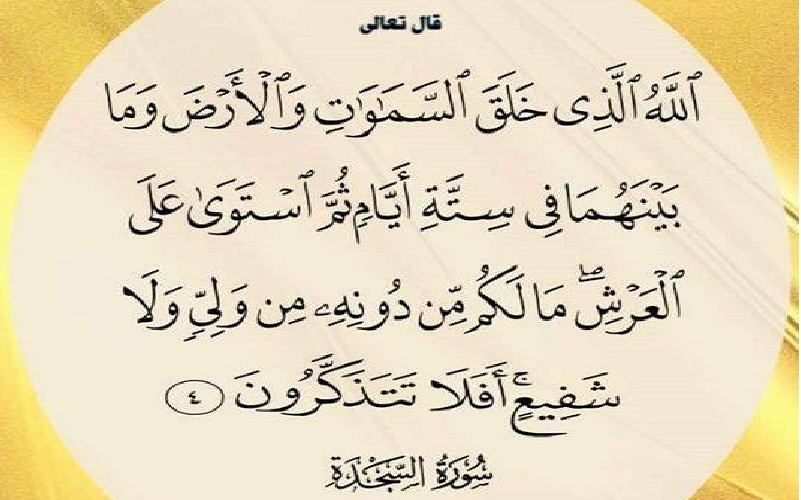 قال تعالى
ٱللَّهُ ٱلَّذِى خَلَقَ ٱلسَّمَـٰوَٰتِ وَٱلْأَرْضَ وَمَا
بَيْنَهُمَا فِى سِتَّةِ أَيَّامٍ ثُمَّ ٱسْتَوَىٰ عَلَى
ٱلْعَرْشِ ۖ مَا لَكُم مِّن دُونِهِۦ مِن وَلِىٍّ وَلَا
شَفِيعٍ ۚ أَفَلَا تَتَذَكَّرُونَ ٤
سُورَةُ السَّجْدَةِ